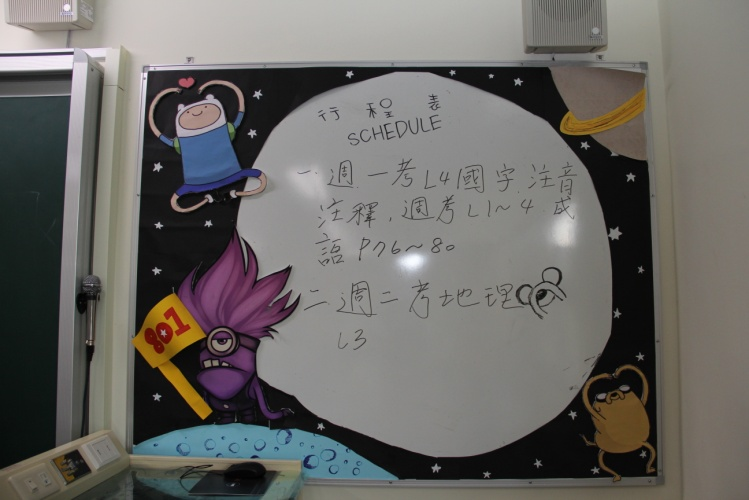 行程表
SCHEDULE
一、週一考L4國字、注音
注釋,週考L1～4 成
語P76～80
二、週二考地理
L3
801